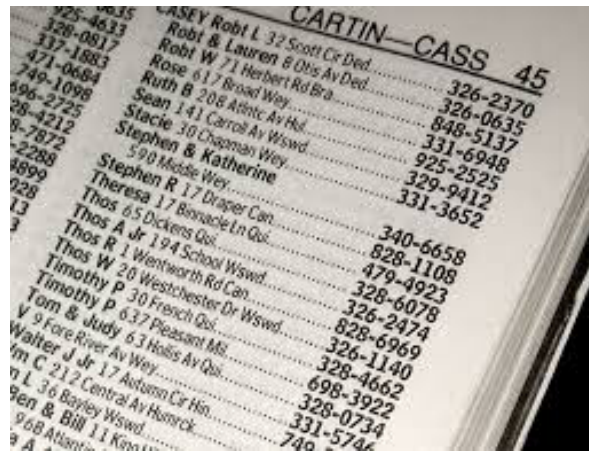 925-4633
328-0817
337-1883
471-0684
749-1098
696-2725
CARTIN—CASS 45
CASEY Robt L 32 Scott Cir Ded 326-2370
Robt & Lauren 8 Otis Av Ded 326-0635
Robt W 71 Herbert Rd Bra 848-5137
Rose 617 Broad Wey 331-6948
Ruth B 208 Atlntc Av Hul 925-2525
Sean 141 Carroll Av Wswd 329-9412
Stacie 30 Chapman Wey 331-3652
Stephen & Katherine
590 Middle Wey 340-6658
Stephen R 17 Draper Can 828-1108
Theresa 17 Binnacle Ln Qui 479-4923
Thos 65 Dickens Qui 328-6078
Thos A Jr 194 School Wswd 326-2474
Thos R 1 Wentworth Rd Can 828-6969
Thos W 20 Westchester Dr Wswd 326-1140
Timothy P 30 French Qui 328-4662
Timothy P 637 Pleasant Mil 698-3922
Tom & Judy 63 Hollis Av Qui 328-0734
V 9 Fore River Av Wey 331-5746
Walter J Jr 17 Autumn Cir Hin 749-
C 212 Central Av Humrck
L 36 Bayley Wswd
& Bill 11 King
968 Atlantic